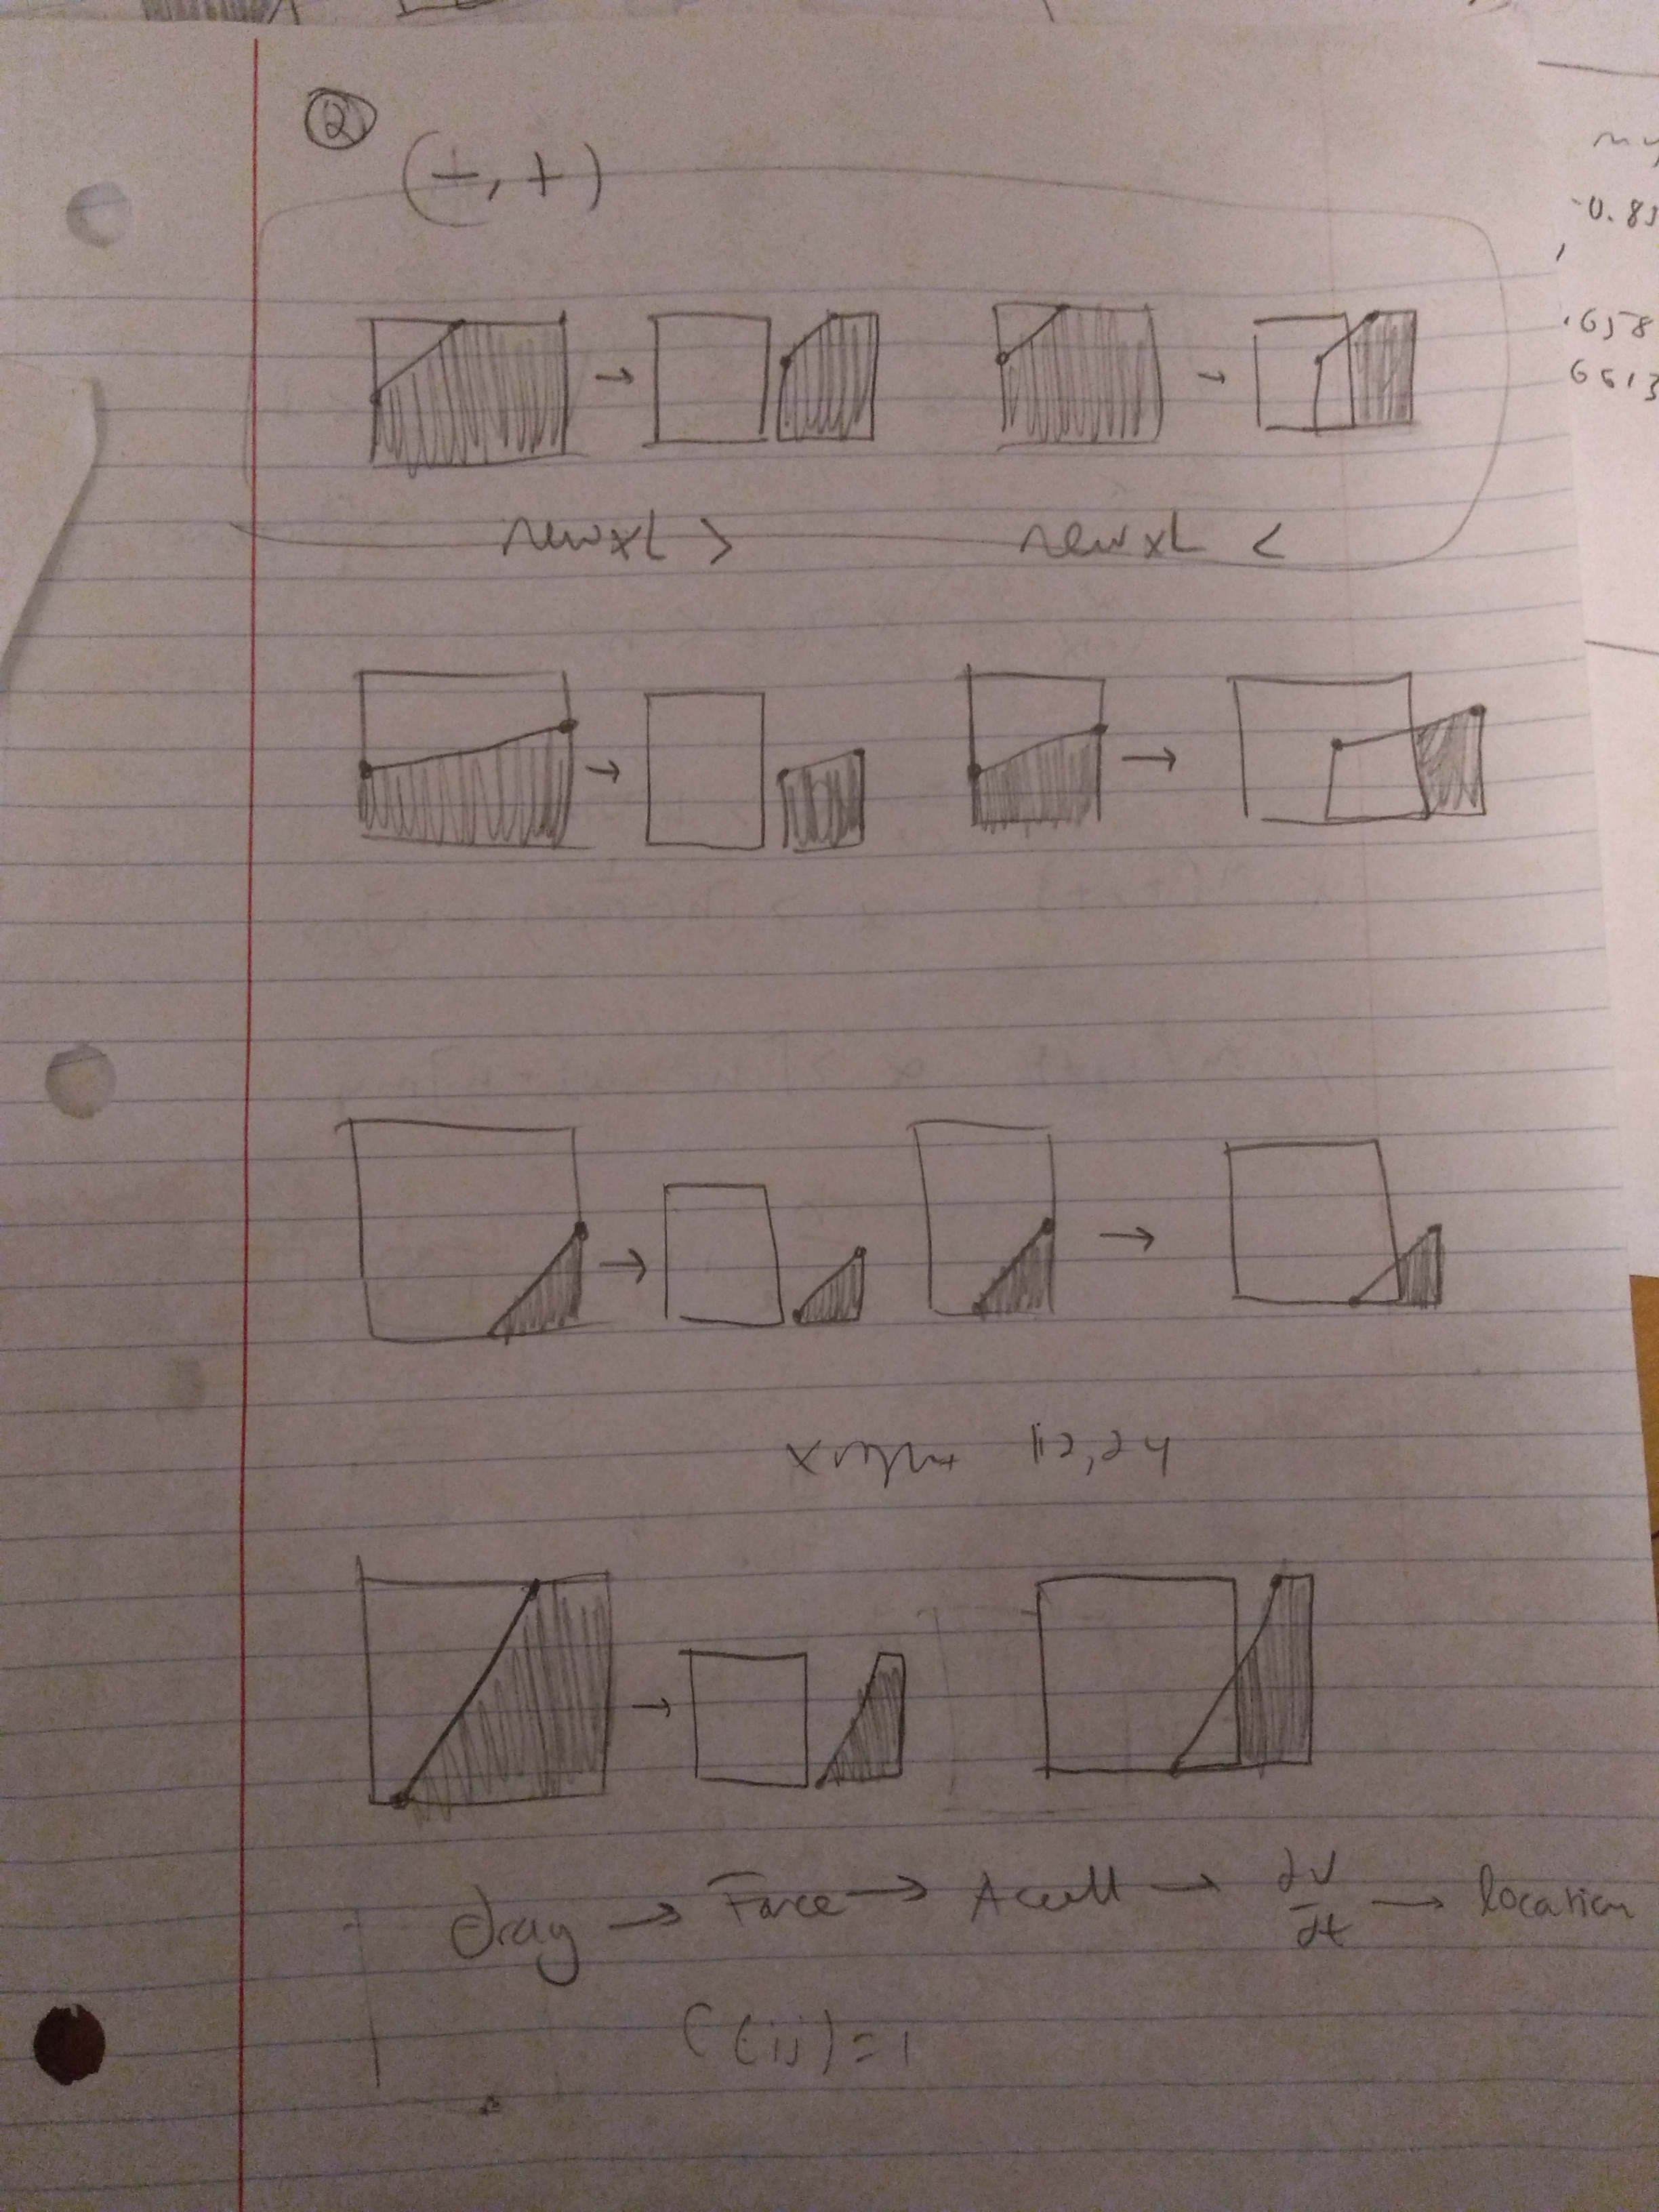 ②
(+, +)
newxL >
newxL <
xright 112, 24
drag → Force → Accell → dV/dt → location
C(ij)=1
-0.83
.658
6613